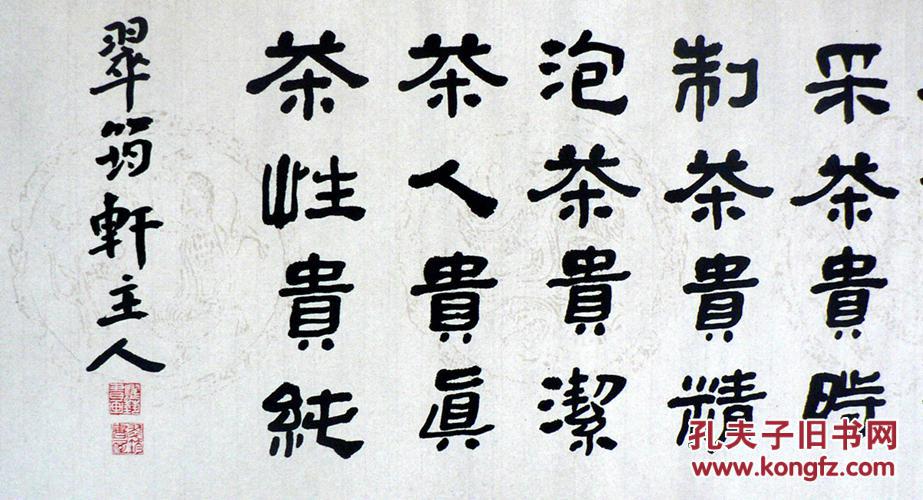 采茶貴時
制茶貴精
泡茶貴潔
茶人貴真
茶性貴純
翠筠軒主人
孔夫子旧书网
www.kongfz.com